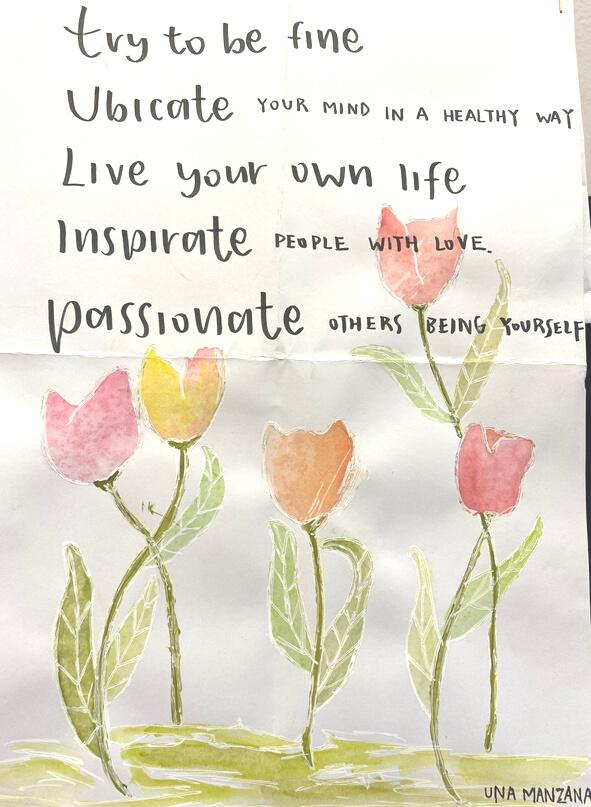 try to be fine
Ubicate YOUR MIND IN A HEALTHY WAY
Live your own life
Inspirate PEOPLE WITH LOVE.
passionate OTHERS BEING YOURSELF
UNA MANZANA